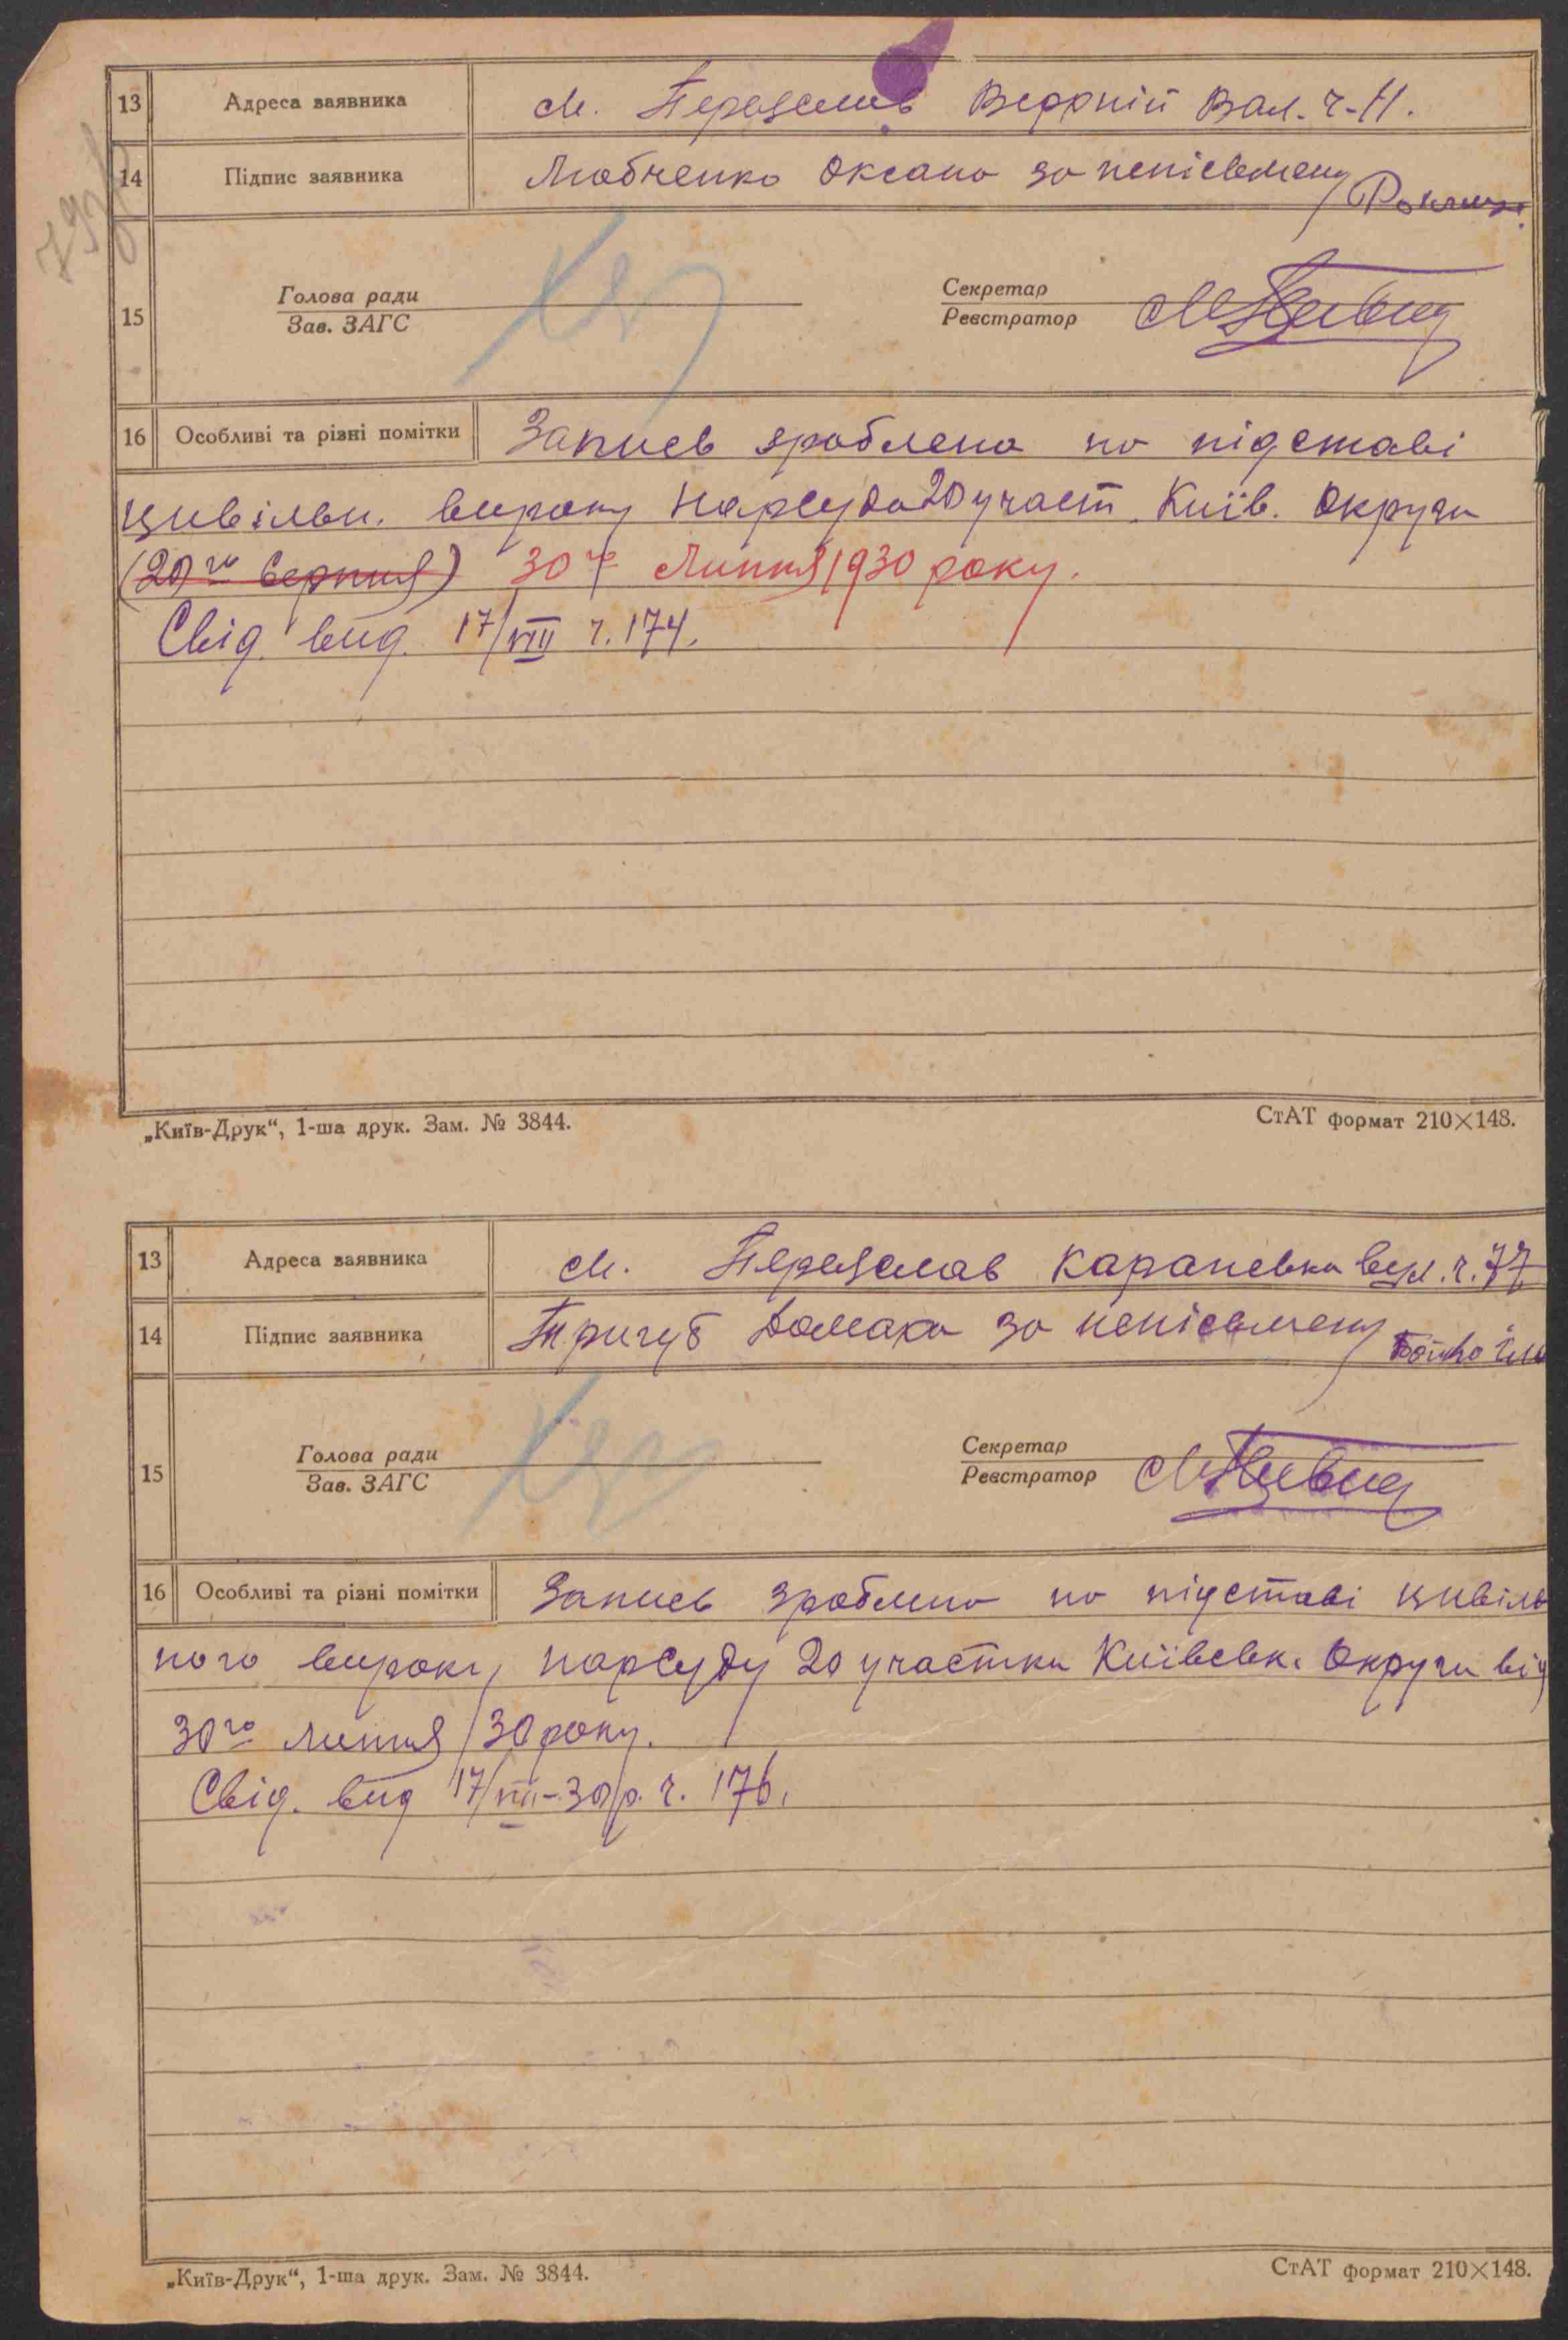 13 Адреса заявника м. Переяслав Верхній Вал. ч-11.
14 Підпис заявника Любченко Оксана за неписьмену
15 Голова ради Секретар
Зав. ЗАГС Реєстратор
16 Особливі та різні помітки Запись зроблено на підставі
цивільн. вироку Нарсуда 20 участ. Київ. Округи
(20го Серпня) 30го Липня 1930 року.
Свід. вид. 17/VIII ч. 174.
„Київ-Друк“, 1-ша друк. Зам. № 3844. СтАТ формат 210×148.
13 Адреса заявника м. Переяслав Карапевка вул. ч. 77
14 Підпис заявника Тригуб Домаха за неписьмену Бойко
15 Голова ради Секретар
Зав. ЗАГС Реєстратор
16 Особливі та різні помітки Запись зроблено на підставі цивіль
ного вироку нарсуду 20 участка Київськ. Округи від
30го Липня 30 року.
Свід. вид 17/VIII-30 р. ч. 176.
„Київ-Друк“, 1-ша друк. Зам. № 3844. СтАТ формат 210×148.